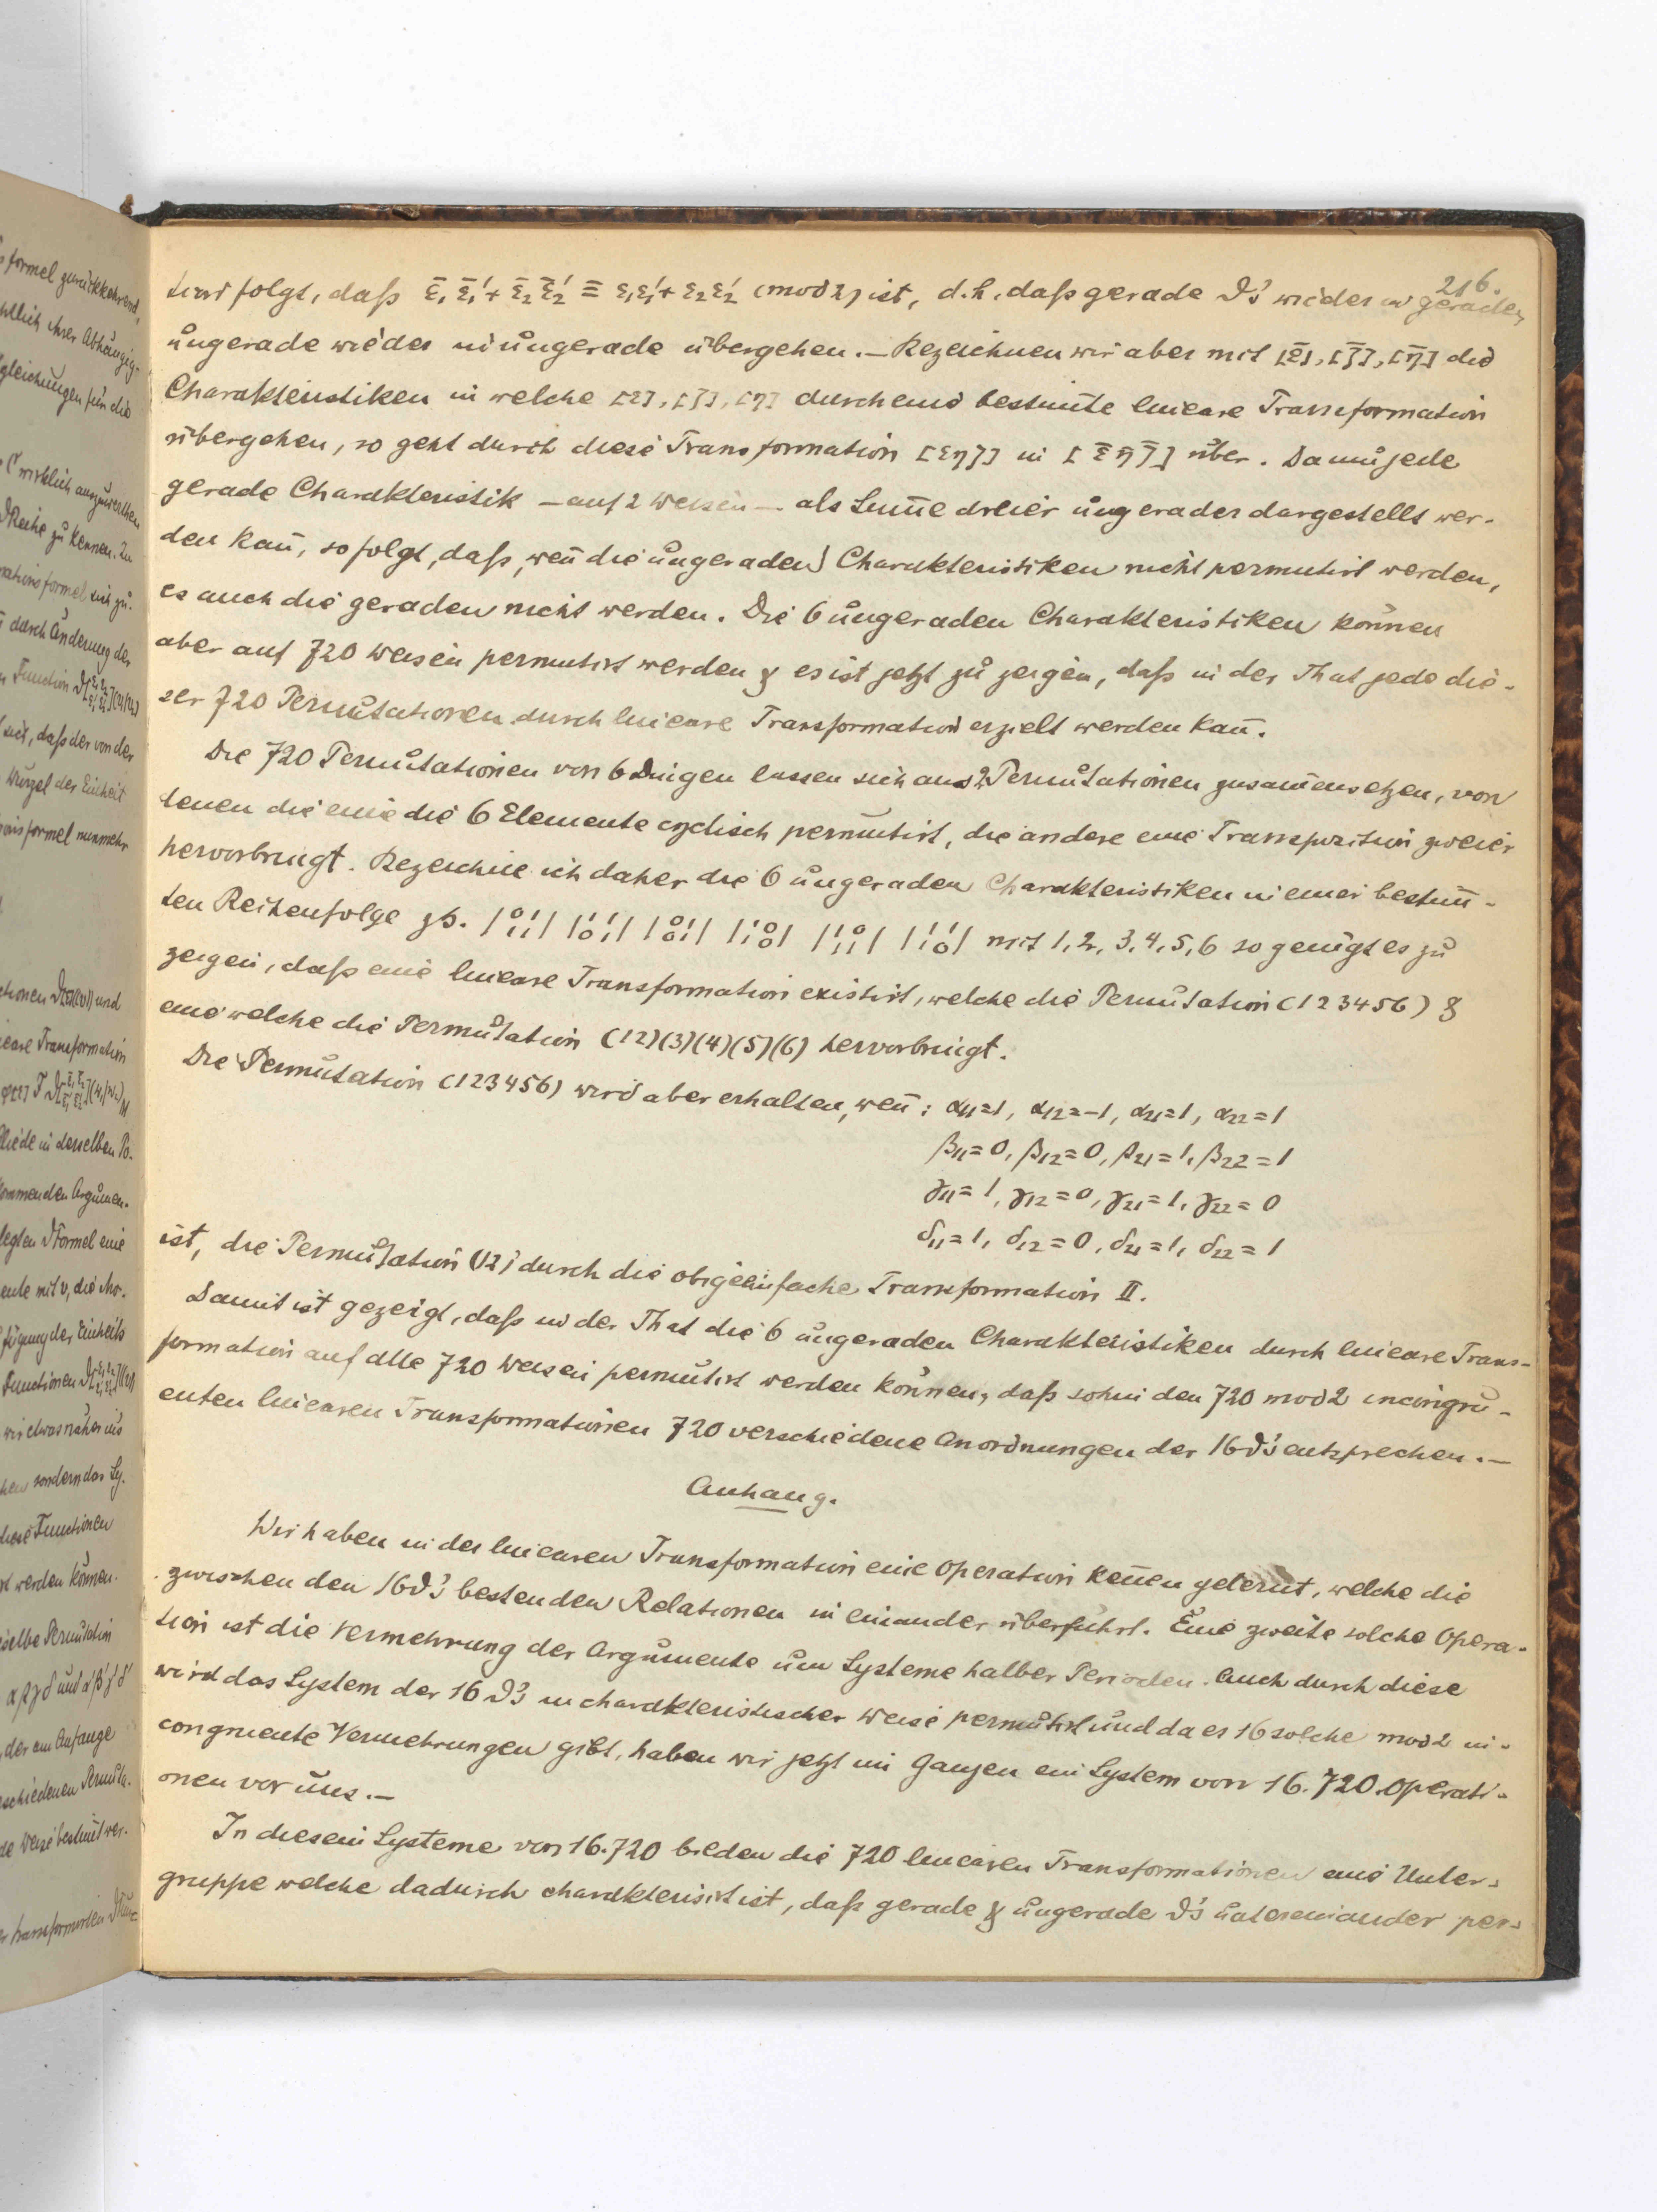 216.
und folgt, daß ε̄₁ε̄₁′+ε̄₂ε̄₂′ ≡ ε₁ε₁′+ε₂ε₂′ (mod 2) ist, d. h. daß gerade ϑ's wieder in gerade,
ungerade wieder in ungerade übergehen. — Bezeichnen wir aber mit [ε̄], [ζ̄], [η̄] die
Charakteristiken in welche [ε], [ζ], [η] durch eine bestim̅te lineare Transformation
übergehen, so geht durch diese Transformation [εηζ] in [ε̄η̄ζ̄] über. Da nun jede
gerade Charakteristik — auf 2 Weisen — als Sum̅e dreier ungerader dargestellt wer-
den kan̅, so folgt, daß, wen̅ die ungeraden Charakteristiken nicht permutirt werden,
es auch die geraden nicht werden. Die 6 ungeraden Charakteristiken können
aber auf 720 Weisen permutirt werden & es ist jetzt zu zeigen, daß in der That jede die-
ser 720 Permutationen durch lineare Transformation erzielt werden kan̅.
Die 720 Permutationen von 6 Dingen lassen sich aus 2 Permutationen zusam̅ensetzen, von
denen die eine die 6 Elemente cyclisch permutirt, die andere eine Transposition zweier
hervorbringt. Bezeichne ich daher die 6 ungeraden Charakteristiken in einer bestim̅-
ten Reihenfolge zb. |⁰₁¹₁| |¹₀¹₁| |⁰₀¹₁| |¹₁⁰₀| |¹₁⁰₁| |¹₁¹₀| mit 1, 2, 3, 4, 5, 6 so genügt es zu
zeigen, daß eine lineare Transformation existirt, welche die Permutation (123456) &
eine welche die Permutation (12)(3)(4)(5)(6) hervorbringt.
Die Permutation (123456) wird aber erhalten, wen̅: α₁₁=1, α₁₂=-1, α₂₁=1, α₂₂=1
β₁₁=0, β₁₂=0, β₂₁=1, β₂₂=1
γ₁₁=1, γ₁₂=0, γ₂₁=1, γ₂₂=0
δ₁₁=1, δ₁₂=0, δ₂₁=1, δ₂₂=1
ist, die Permutation (12) durch die obige einfache Transformation II.
Damit ist gezeigt, daß in der That die 6 ungeraden Charakteristiken durch lineare Trans-
formation auf alle 720 Weisen permutirt werden können, daß sohin den 720 mod 2 incongru-
enten linearen Transformationen 720 verschiedene Anordnungen der 16 ϑ's entsprechen. —
Anhang.
Wir haben in der linearen Transformation eine Operation ken̅en gelernt, welche die
zwischen den 16 ϑ's bestenden Relationen in einander überführt. Eine zweite solche Opera-
tion ist die Vermehrung der Argumente um Systeme halber Perioden. Auch durch diese
wird das System der 16 ϑ's in charakteristischer Weise permutirt und da es 16 solche mod 2 in-
congruente Vermehrungen gibt, haben wir jetzt im Ganzen ein System von 16.720 Operati-
onen vor uns. —
In diesem Systeme von 16.720 bilden die 720 linearen Transformationen eine Unter-
gruppe welche dadurch charakterisirt ist, daß gerade & ungerade ϑ's untereinander per-
formel zurückkehrend,
ihrer Abhängig-
gleichungen für die
wirklich auszuwerthen
Reihe zu kennen. Zu
durch Änderung der
Function
daß der von der
Wurzel der Einheit
formel nunmehr
und
Transformation
in derselben Po-
kommenden Argumen-
Formel eine
mit v, die Mo-
fügung der Einheits
Functionen
wir etwas näher ins
sondern das Sy-
Functionen
werden können.
selbe Permutation
αβγδ und α′β′γ′δ′
der am Anfange
schiedenen Permuta-
Weise bestim̅t wer-
transformirten